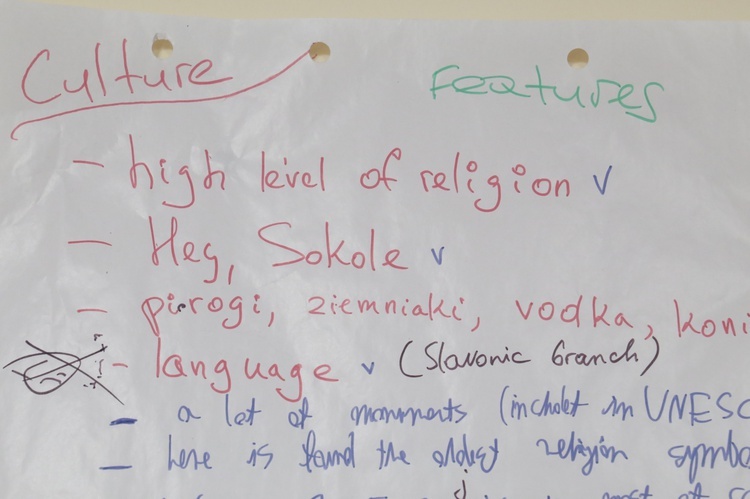 Culture Features
- high level of religion v
- Hey, Sokole v
- pierogi, ziemniaki, vodka, koni
- language v (Slavonic branch)
- a lot of monuments (includet in UNESC
- here is found the oldest religion symbo